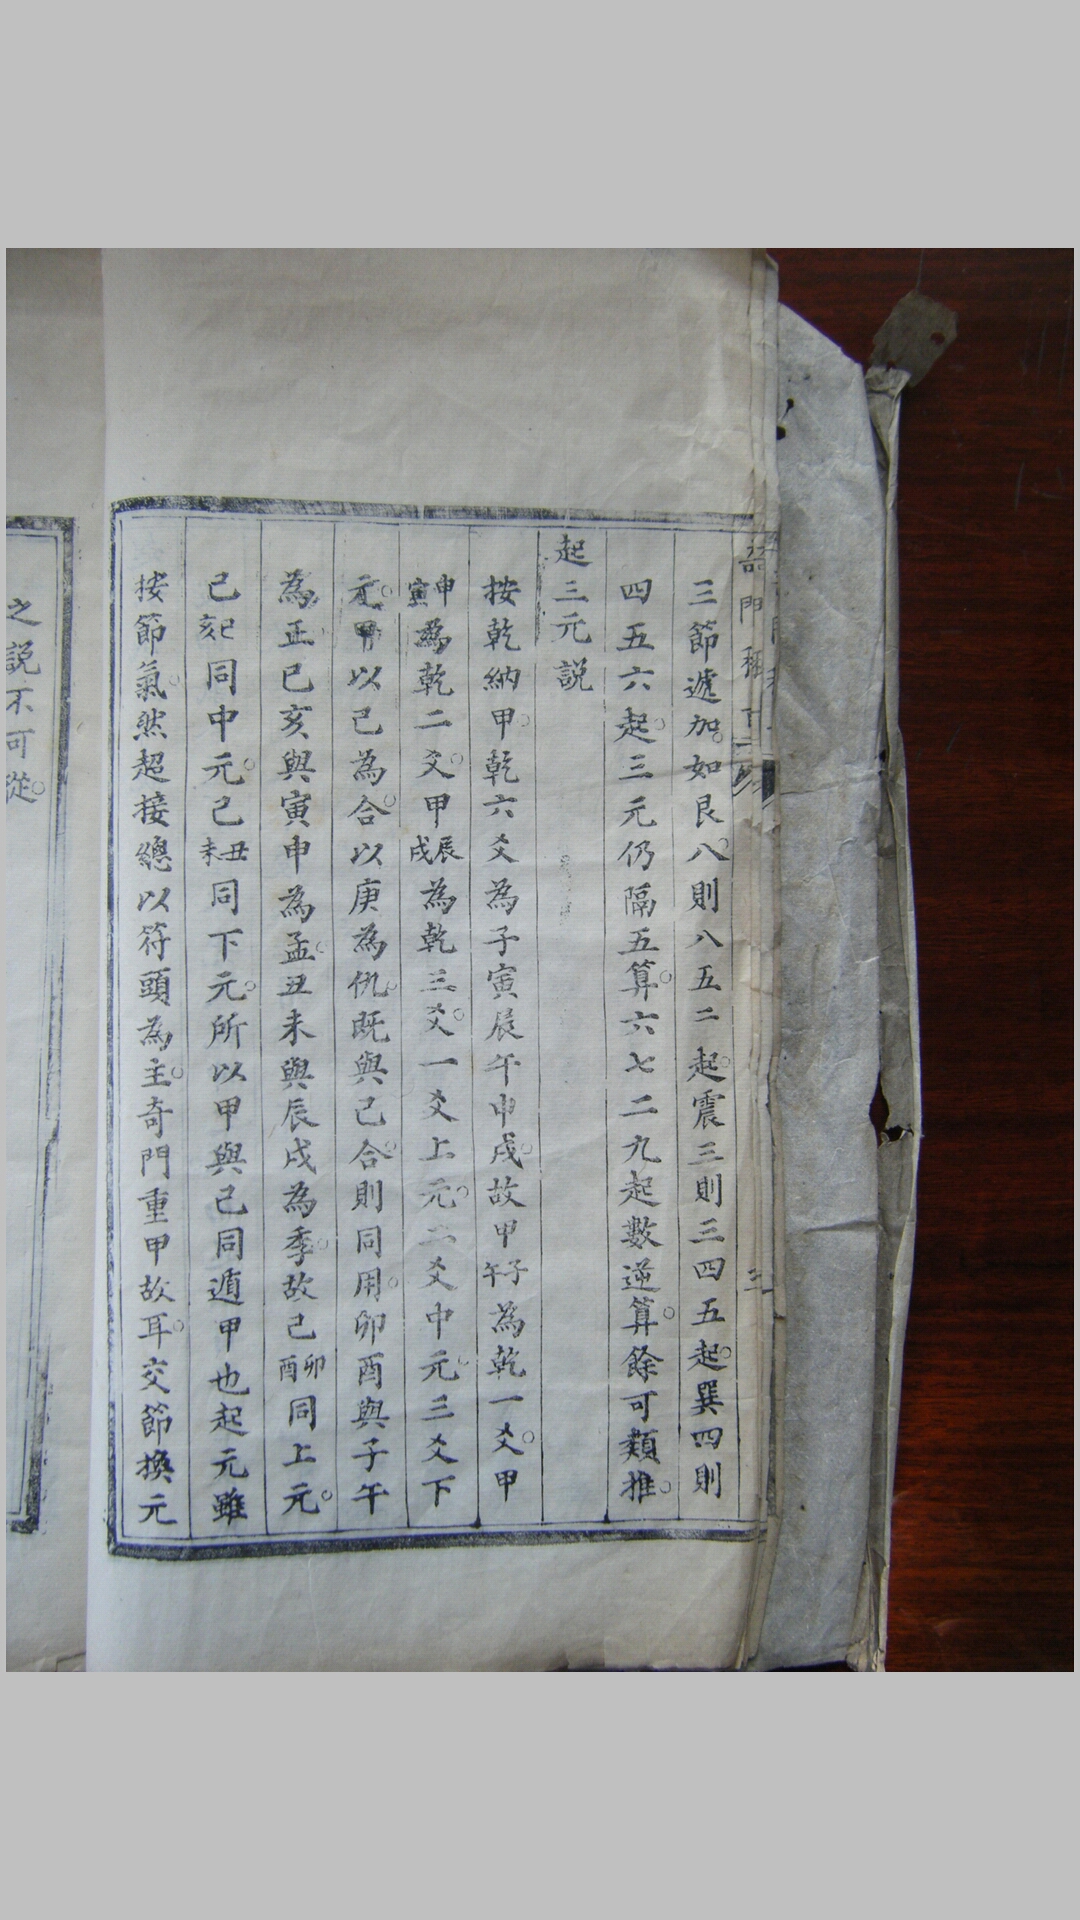 三節遞加。如艮八。則八五二起。震三則三四五起。巽四則
四五六起。三元仍隔五算。六七二九起數逆算。餘可類推。
起三元説
按乾納甲。乾六爻為子寅辰午申戌。故甲子午為乾一爻。甲
申寅為乾二爻。甲辰戌為乾三爻。一爻上元。二爻中元。三爻下
元。甲以己為合。以庚為仇。既與己合。則同用。卯酉與子午
為正。巳亥與寅申為孟。丑未與辰戌為季。故己卯酉同上元。
己巳亥同中元。己丑未同下元。所以甲與己同遁甲也起元雖
按節氣。然超接總以符頭為主。奇門重甲故耳。交節換元
之説不可從。